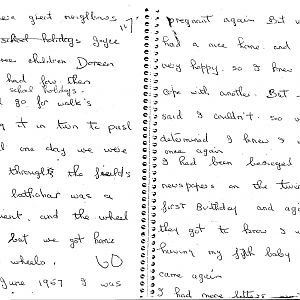 were great neighbours
school holidays Joyce
children Doreen
had few then
school holidays.
go for walk's
it in turn to push
one day we were
through the fields
was a
and the wheel
but we got home
wheels.
60
June 1967 I was
pregnant again But
had a nice home. and
very happy. so I knew
cope with another. But
said I couldn't. so
determined I knew I
once again
I had been besieged
newspapers on the
first Birthday and
they got to know I
having my fifth baby
came again
I had more letters